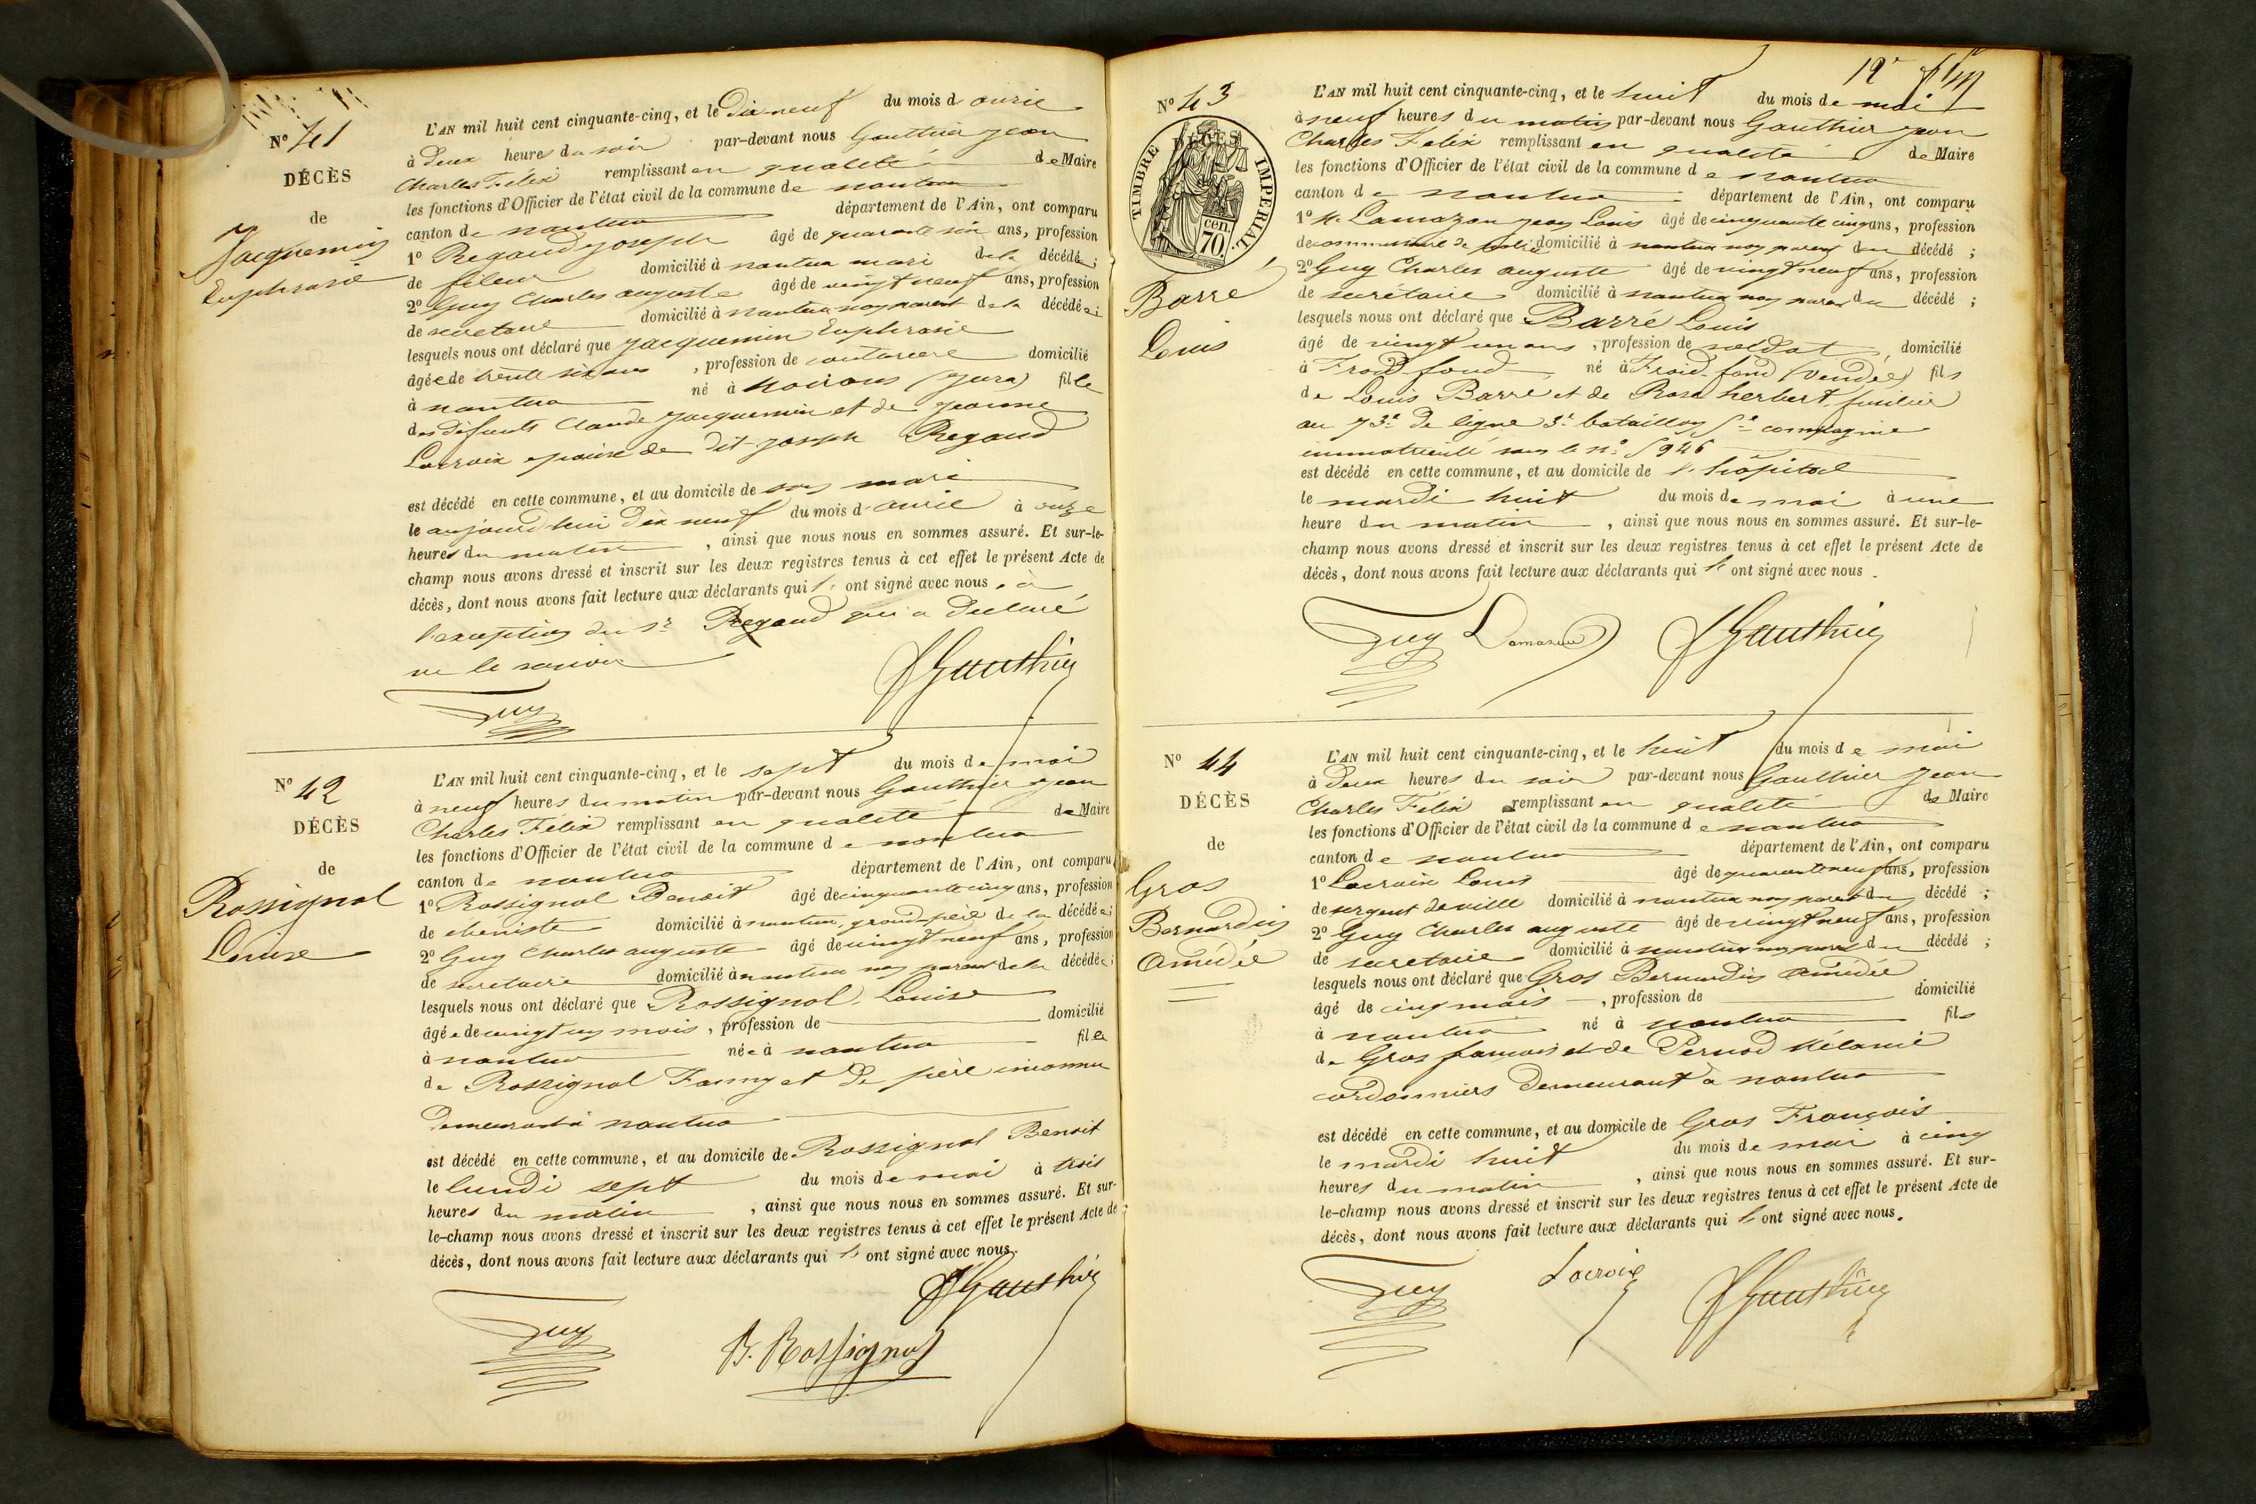 N° 41
DÉCÈS
de
Jacquemin
Euphrasie
L'AN mil huit cent cinquante-cinq, et le Dix neuf du mois d avril
à Deux heures du soir par-devant nous Gauthier Jean
Charles Félix remplissant en qualité de Maire
les fonctions d'Officier de l'état civil de la commune de nantua
canton de nantua département de l'Ain, ont comparu
1° Regaud Joseph âgé de quarante six ans, profession
de fileur domicilié à nantua mari de la décédée;
2° Guy Charles auguste âgé de vingt neuf ans, profession
de secretaire domicilié à nantua non parent de la décédée;
lesquels nous ont déclaré que Jacquemin Euphrasie
âgée de trente six ans, profession de couturiere domicilié
à nantua né à Moirans (Jura) fille
des défunts Claude Jacquemin et de Jeanne
Lacroix epouse de dit Joseph Regaud
est décédé en cette commune, et au domicile de son mari
le aujourd'hui dix neuf du mois d avril à onze
heures du matin, ainsi que nous nous en sommes assuré. Et sur-le-
champ nous avons dressé et inscrit sur les deux registres tenus à cet effet le présent Acte de
décès, dont nous avons fait lecture aux déclarants qui l' ont signé avec nous, à
l'exception du sr Regaud qui a declaré
ne le savoir
Guy JGauthier
N° 42
DÉCÈS
de
Rossignol
Louise
L'AN mil huit cent cinquante-cinq, et le sept du mois de mai
à neuf heures du matin par-devant nous Gauthier Jean
Charles Félix remplissant en qualité de Maire
les fonctions d'Officier de l'état civil de la commune de nantua
canton de nantua département de l'Ain, ont comparu
1° Rossignol Benoit âgé de cinquante cinq ans, profession
de ebeniste domicilié à nantua, grand père de la décédée;
2° Guy Charles auguste âgé de vingt neuf ans, profession
de secretaire domicilié à nantua non parent de la décédée;
lesquels nous ont déclaré que Rossignol Louise
âgée de vingt un mois, profession de domicilié
à nantua née à nantua fille
de Rossignol Fanny et de père inconnu
Demeurant à nantua
est décédé en cette commune, et au domicile de Rossignol Benoit
le lundi sept du mois de mai à trois
heures du matin, ainsi que nous nous en sommes assuré. Et sur-
le-champ nous avons dressé et inscrit sur les deux registres tenus à cet effet le présent Acte de
décès, dont nous avons fait lecture aux déclarants qui l' ont signé avec nous.
JGauthier
Guy B. Rossignol
19e
N° 43
DÉCÈS
TIMBRE IMPÉRIAL
cen. 70.
Barré
Louis
L'AN mil huit cent cinquante-cinq, et le huit du mois de mai
à neuf heures du matin par-devant nous Gauthier Jean
Charles Félix remplissant en qualité de Maire
les fonctions d'Officier de l'état civil de la commune de nantua
canton de nantua département de l'Ain, ont comparu
1° Mr Lamazou Jean Louis âgé de cinquante cinq ans, profession
de commissaire de police domicilié à nantua non parent du décédé;
2° Guy Charles auguste âgé de vingt neuf ans, profession
de secrétaire domicilié à nantua non parent du décédé;
lesquels nous ont déclaré que Barré Louis
âgé de vingt un ans, profession de soldat, domicilié
à Froid-fond né à Froid-fond (Vendée) fils
de Louis Barré et de Rose herbert, fusilier
au 73e de ligne 3e bataillon 5e compagnie
immatriculé sous le n° 5946
est décédé en cette commune, et au domicile de l'hôpital
le mardi huit du mois de mai à une
heure du matin, ainsi que nous nous en sommes assuré. Et sur-le-
champ nous avons dressé et inscrit sur les deux registres tenus à cet effet le présent Acte de
décès, dont nous avons fait lecture aux déclarants qui l' ont signé avec nous.
Guy Lamazou JGauthier
N° 44
DÉCÈS
de
Gros
Bernardin
Amédée
L'AN mil huit cent cinquante-cinq, et le huit du mois de mai
à Deux heures du soir par-devant nous Gauthier Jean
Charles Félix remplissant en qualité de Maire
les fonctions d'Officier de l'état civil de la commune de nantua
canton de nantua département de l'Ain, ont comparu
1° Lacroix Louis âgé de quarante neuf ans, profession
de sergent de ville domicilié à nantua non parent du décédé;
2° Guy Charles auguste âgé de vingt neuf ans, profession
de secretaire domicilié à nantua non parent du décédé;
lesquels nous ont déclaré que Gros Bernardin Amédée
âgé de cinq mois, profession de domicilié
à nantua né à nantua fils
de Gros francois et de Pernod Mélanie
cordonniers Demeurant a nantua
est décédé en cette commune, et au domicile de Gros François
le mardi huit du mois de mai à cinq
heures du matin, ainsi que nous nous en sommes assuré. Et sur-
le-champ nous avons dressé et inscrit sur les deux registres tenus à cet effet le présent Acte de
décès, dont nous avons fait lecture aux déclarants qui l' ont signé avec nous.
Guy Lacroix JGauthier